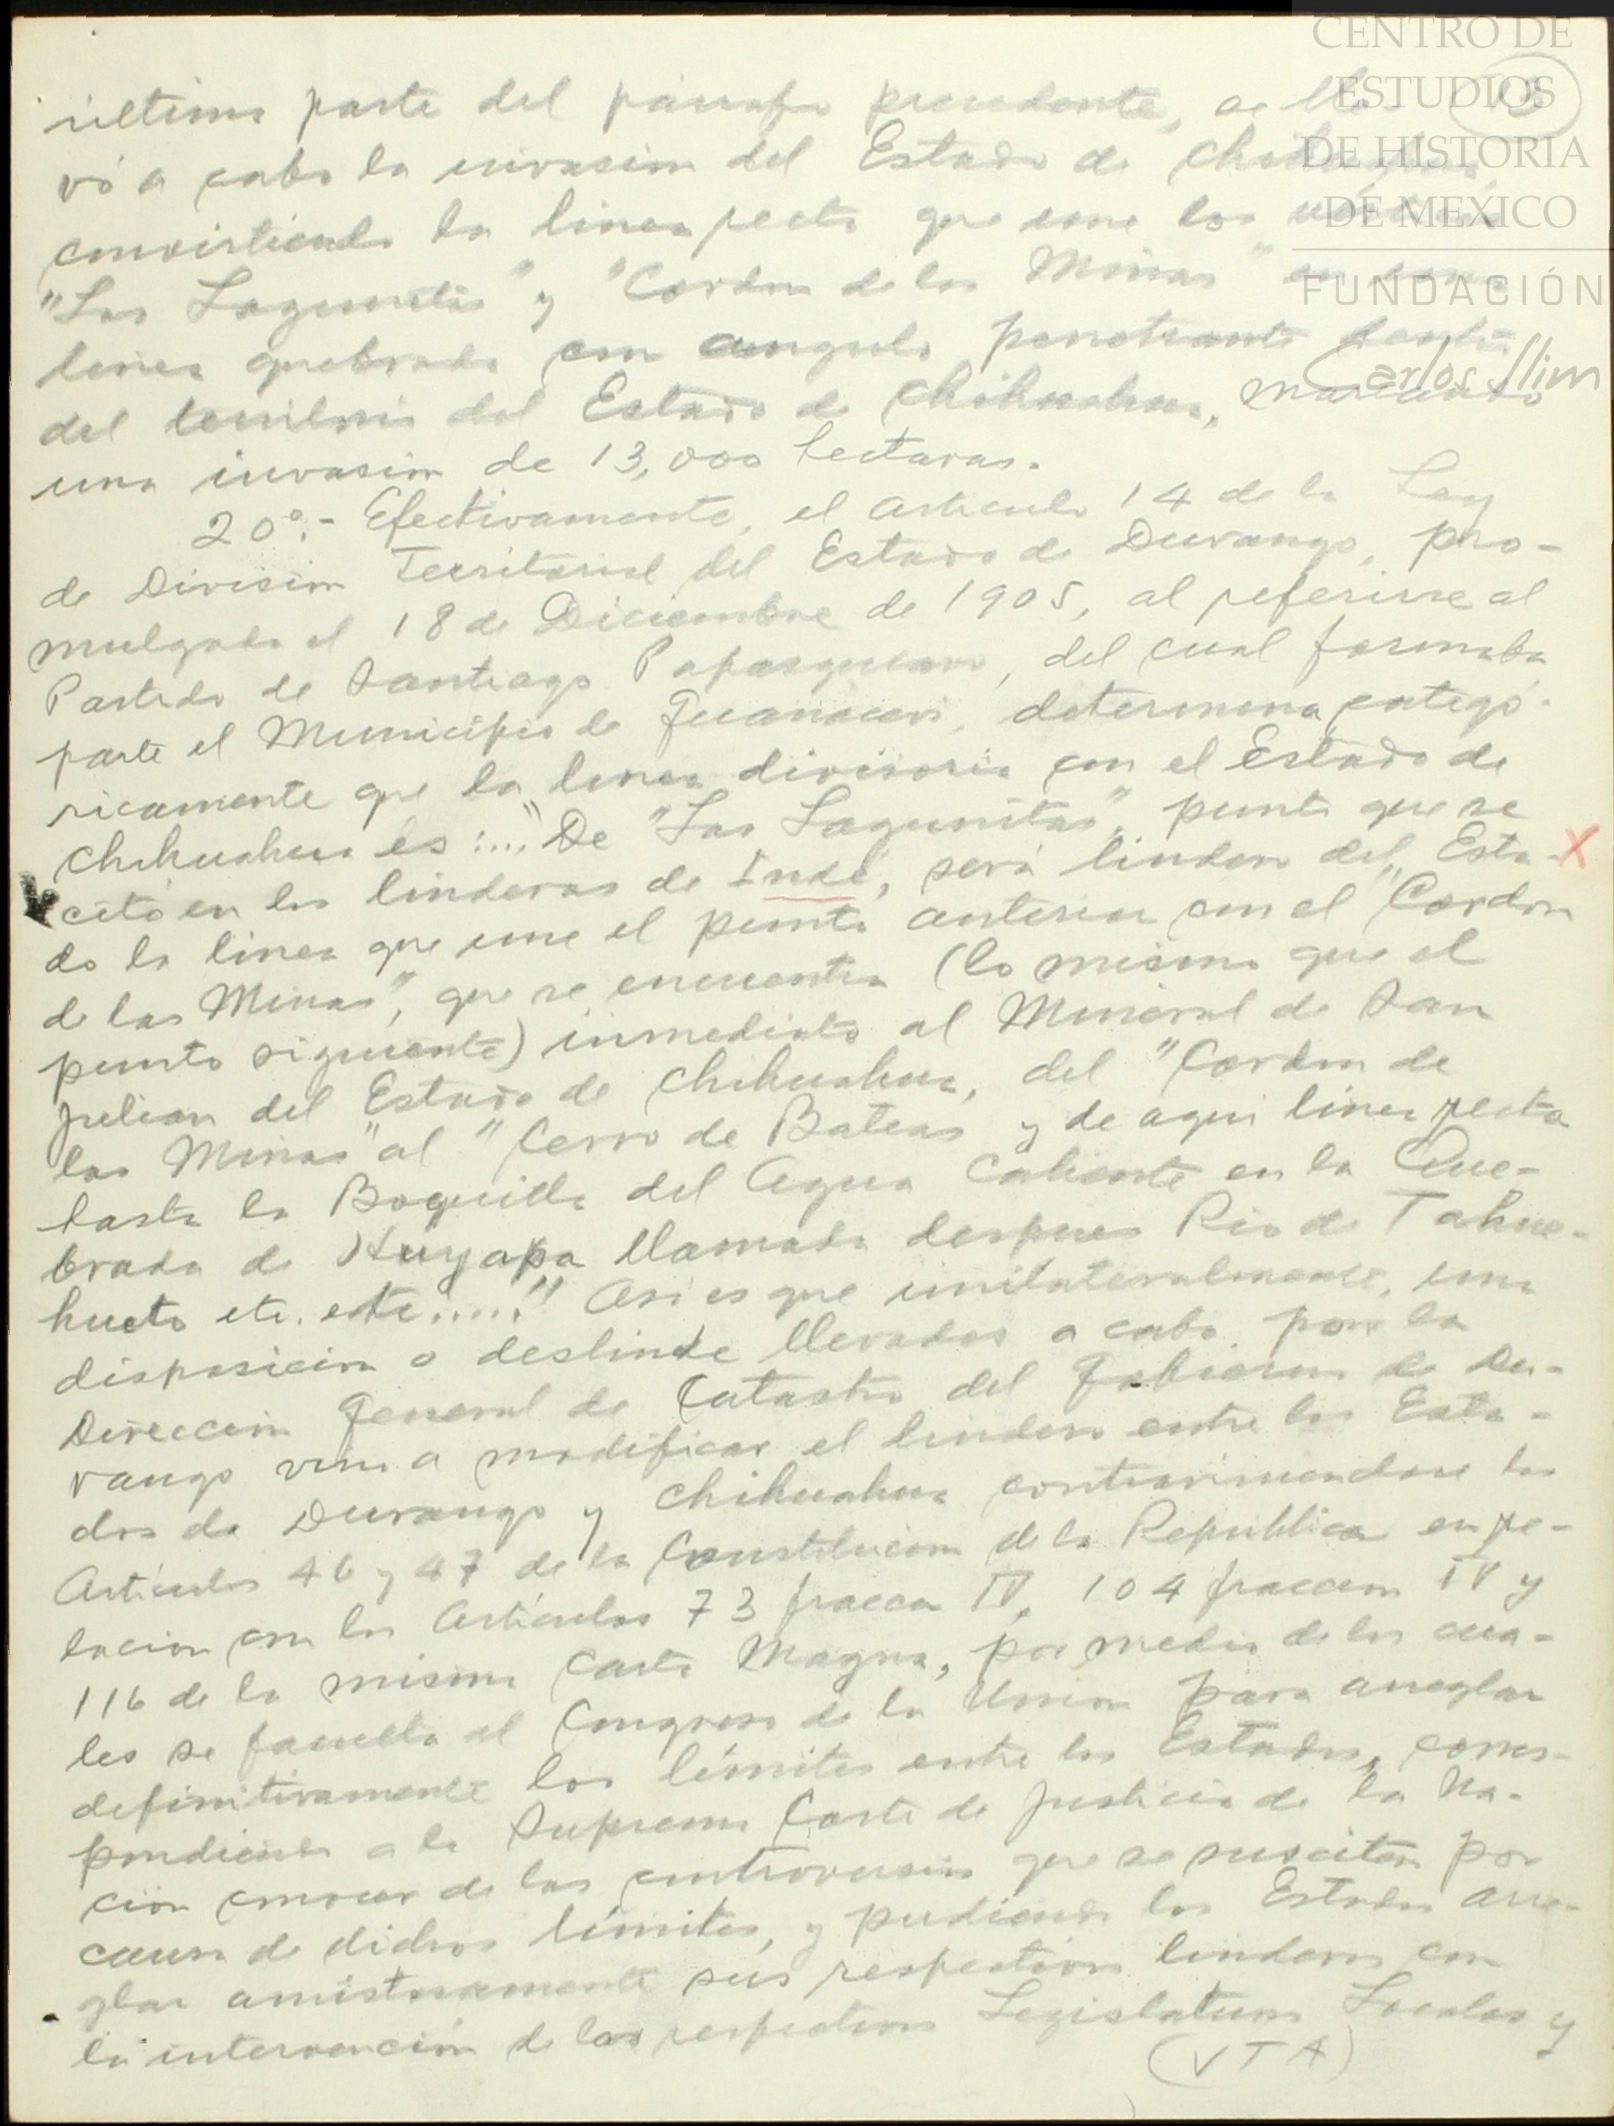 CENTRO DE
ESTUDIOS
DE HISTORIA
DE MÉXICO
FUNDACIÓN
Carlos Slim
última parte del párrafo precedente, se lle-
vó a cabo la invasion del Estado de Chihuahua,
convirtiendo la linea recta que une los
"Las Lagunitas" y "Cordon de las Minas" en una
linea quebrada con angulo penetrante dentro
del territorio del Estado de Chihuahua, marcando
una invasión de 13,000 hectaras.
20°.- Efectivamente, el articulo 14 de la Ley
de Division Territorial del Estado de Durango, pro-
mulgada el 18 de Diciembre de 1905, al referirse al
Partido de Santiago Papasquiaro, del cual formaba
parte el Municipio de Guanaceví, determina categó-
ricamente que la linea divisoria con el Estado de
Chihuahua es:..."De "Las Lagunitas", punto que se
citó en los linderos de Indé, será lindero del Esta- X
do la linea que une el punto anterior con el "Cordon
de las Minas", que se encuentra (lo mismo que el
punto siguiente) inmediato al Mineral de San
Julian del Estado de Chihuahua, del "Cordon de
las Minas" al "Cerro de Bateas y de aqui linea recta
hasta la Boquilla del Agua Caliente en la Que-
brada de Huyapa llamada despues Rio de Tahue-
hueto etc. etc....." Asi es que unilateralmente, una
disposicion o deslinde llevados a cabo por la
Direccion General de Catastro del Gobierno de Du-
rango vino a modificar el lindero entre los Esta-
dos de Durango y Chihuahua contraviniendose los
Artículos 46 y 47 de la Constitucion de la Republica en re-
lacion con los Artículos 73 fraccion IV, 104 fraccion IV y
116 de la misma Carta Magna, por medio de los cua-
les se faculta al Congreso de la Union para arreglar
definitivamente los límites entre los Estados, corres-
pondiendo a la Suprema Corte de Justicia de la Na-
ción conocer de las controversias que se susciten por
causa de dichos límites, y pudiendo los Estados arre-
glar amistosamente sus respectivos linderos con
la intervención de las respectivas Legislaturas Locales y
(VTA)